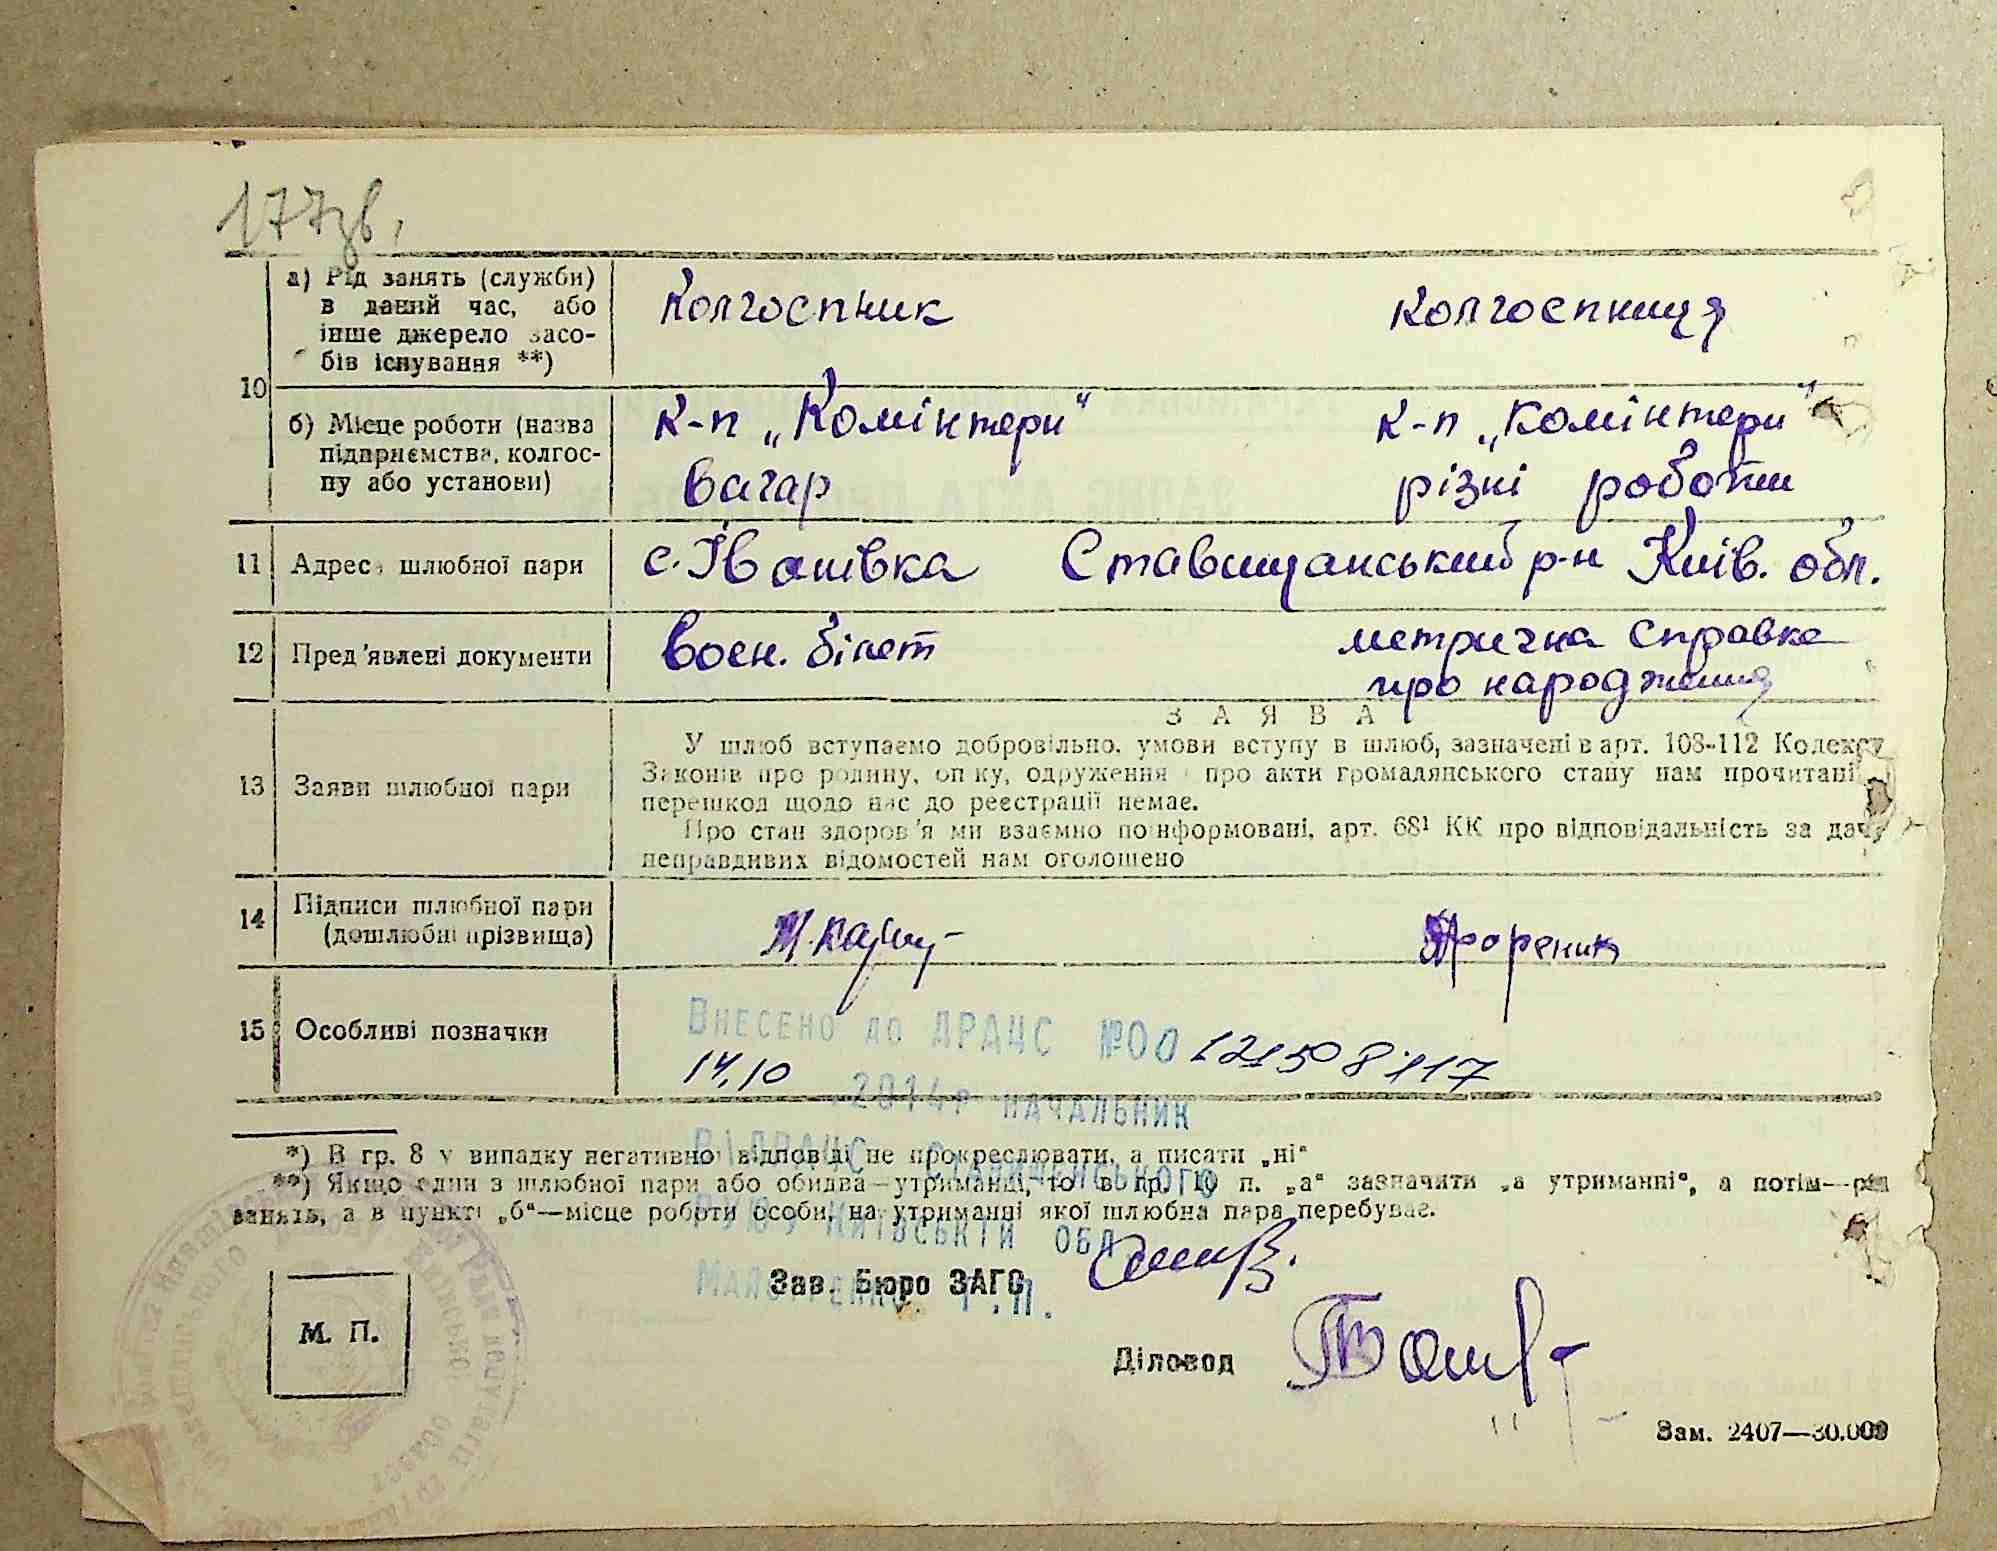 177зв.
а) Рід занять (служби) в даний час, або інше джерело засобів існування **)
Колгоспник
колгоспниця
10
б) Місце роботи (назва підприємства, колгоспу або установи)
к-п „Комінтерн"
к-п „комінтерн"
вагар
різні роботи
11 Адреса шлюбної пари
с. Івашівка Ставищанський р-н Київ. обл.
12 Пред'явлені документи
воєн. білет
метрична справка
про народження
З А Я В А
13 Заяви шлюбної пари
У шлюб вступаємо добровільно, умови вступу в шлюб, зазначені в арт. 108-112 Кодексу
Законів про родину, опіку, одруження і про акти громадянського стану нам прочитані
перешкод щодо нас до реєстрації немає.
Про стан здоров'я ми взаємно поінформовані, арт. 68¹ КК про відповідальність за дачу
неправдивих відомостей нам оголошено
14 Підписи шлюбної пари (дошлюбні прізвища)
15 Особливі позначки
Внесено до ДРАЦС №00 121508117
14.10
2014р начальник
ВІДРАЦС Ставищенського
РУЮ у Київській обл.
*) В гр. 8 у випадку негативної відповіді не прокреслювати, а писати „ні"
**) Якщо один з шлюбної пари або обидва—утриманці, то в гр. 10 п. „а" зазначити „а утриманні", а потім—рід
занять, а в пункті „б"—місце роботи особи, на утриманні якої шлюбна пара перебуває.
Зав. Бюро ЗАГС
М. П.
Діловод
Зам. 2407—30.000